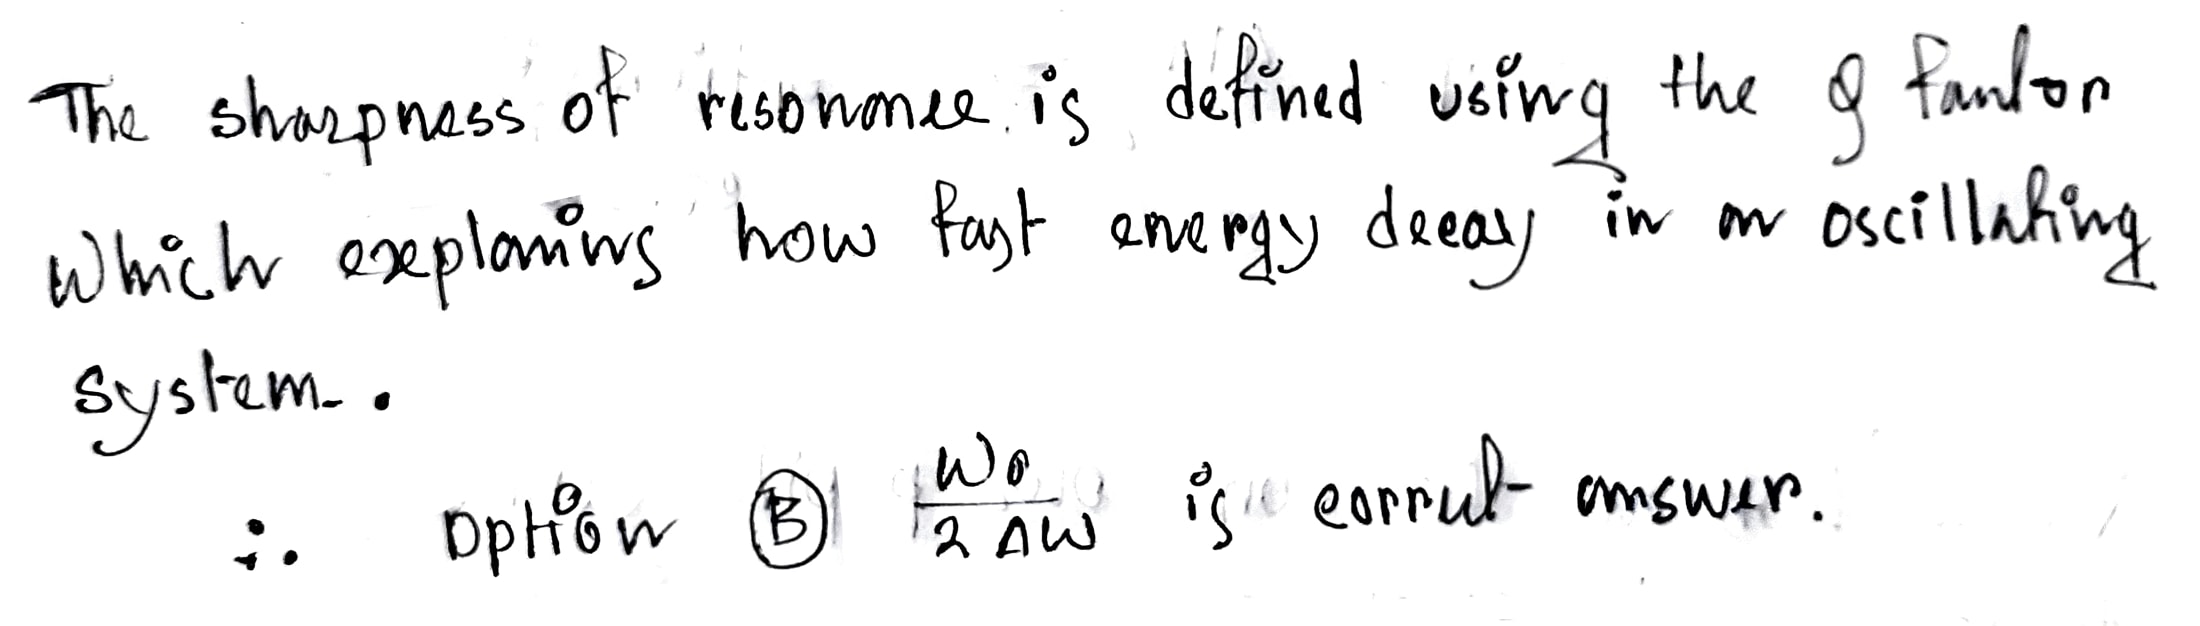 The sharpness of resonance is defined using the Q factor
which explains how fast energy decay in an oscillating
system.
∴ Option Ⓑ W0/2ΔW is correct answer.